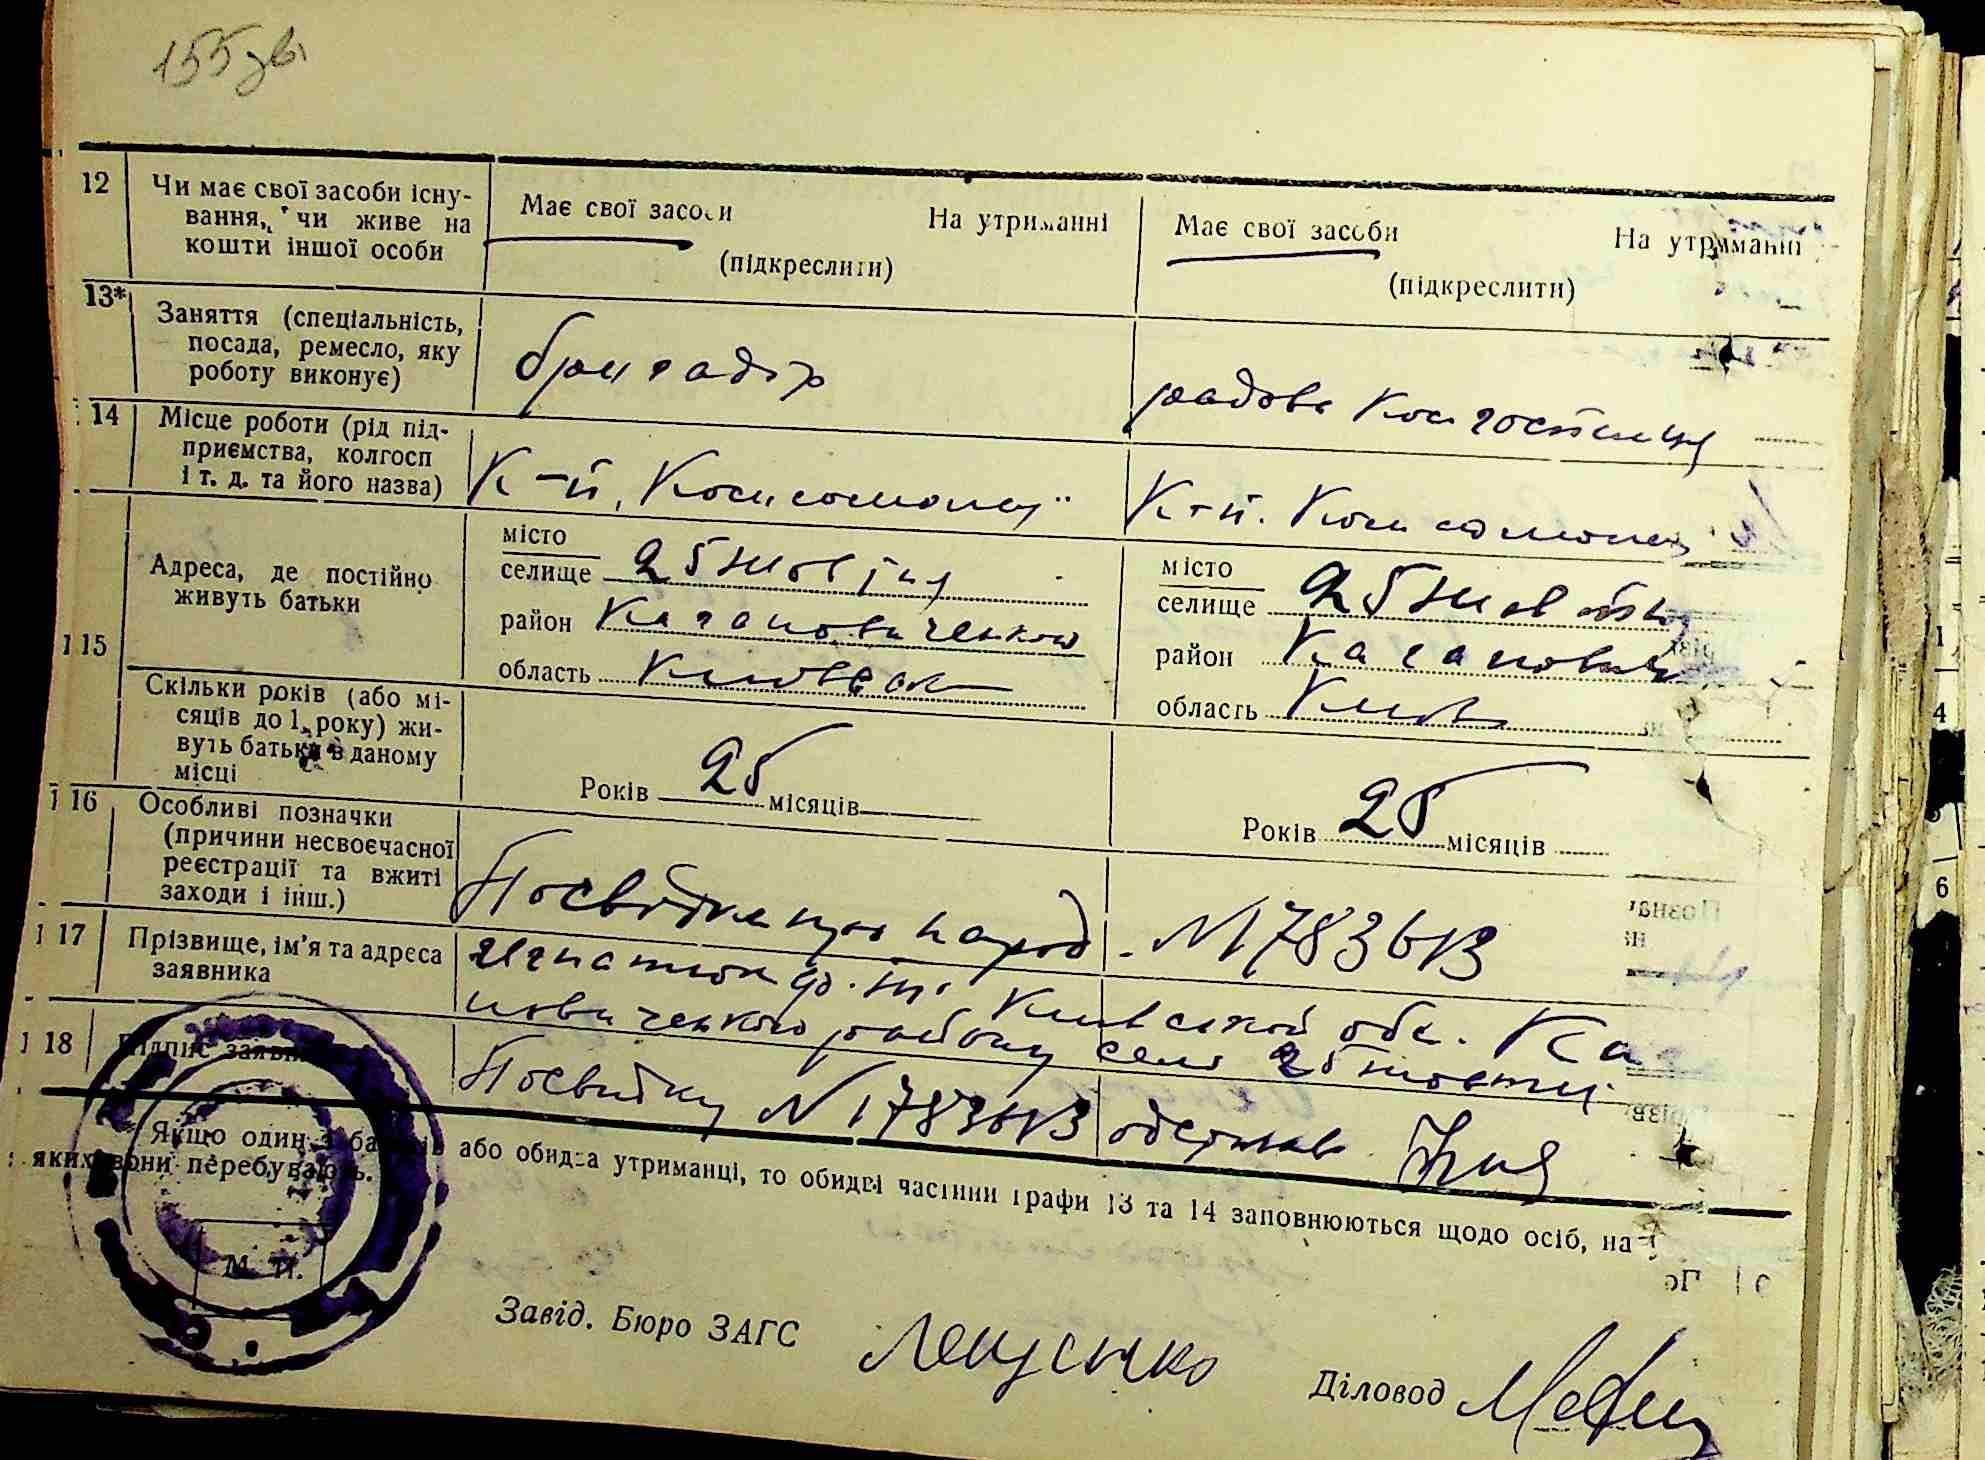 155зв.
12 Чи має свої засоби існу-
вання, чи живе на
кошти іншої особи
Має свої засоби На утриманні
(підкреслити)
Має свої засоби На утриманні
(підкреслити)
13* Заняття (спеціальність,
посада, ремесло, яку
роботу виконує)
бригадір
рядова колгоспниця
14 Місце роботи (рід під-
приємства, колгосп
і т. д. та його назва)
К-п „Комсомолец"
К-п. Комсомолец
15 Адреса, де постійно
живуть батьки
місто
селище 25 Жовтня
район Кагановиченского
область Киевская
місто
селище 25 Жовтня
район Каганович
область Киев
Скільки років (або мі-
сяців до 1 року) жи-
вуть батьки в даному
місці
Років 25 місяців
Років 25 місяців
16 Особливі позначки
(причини несвоєчасної
реєстрації та вжиті
заходи і інш.)
Посвідка про народ. № 178361
17 Прізвище, ім'я та адреса
заявника
Игнатюк Киевской обл. Кага
новиченского району село 25 жовтня
18 Підпис заявника
Посвідку № 178361 одержав
* Якщо один з батьків або обидва утриманці, то обидві частини графи 13 та 14 заповнюються щодо осіб, на
яких вони перебувають.
М. П.
Завід. Бюро ЗАГС
Діловод